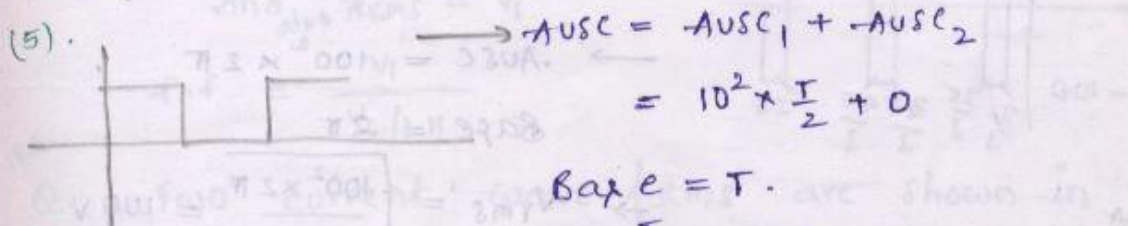 (5). → AUSC = AUSC₁ + AUSC₂
= 10² × T/2 + 0
Base = T.